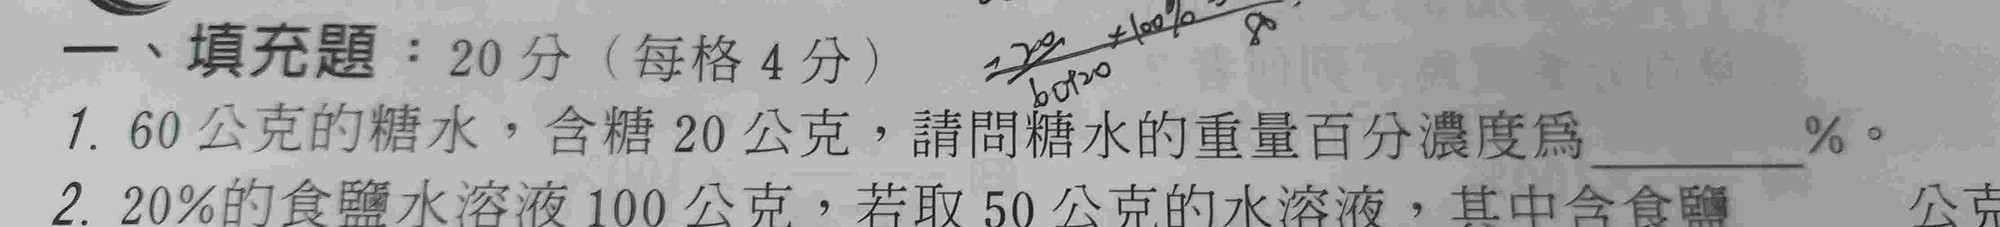 一、填充題：20分（每格4分）
= 20/60+20 × 100% = /80
1. 60公克的糖水，含糖20公克，請問糖水的重量百分濃度爲______%。
2. 20%的食鹽水溶液100公克，若取50公克的水溶液，其中含食鹽 公克